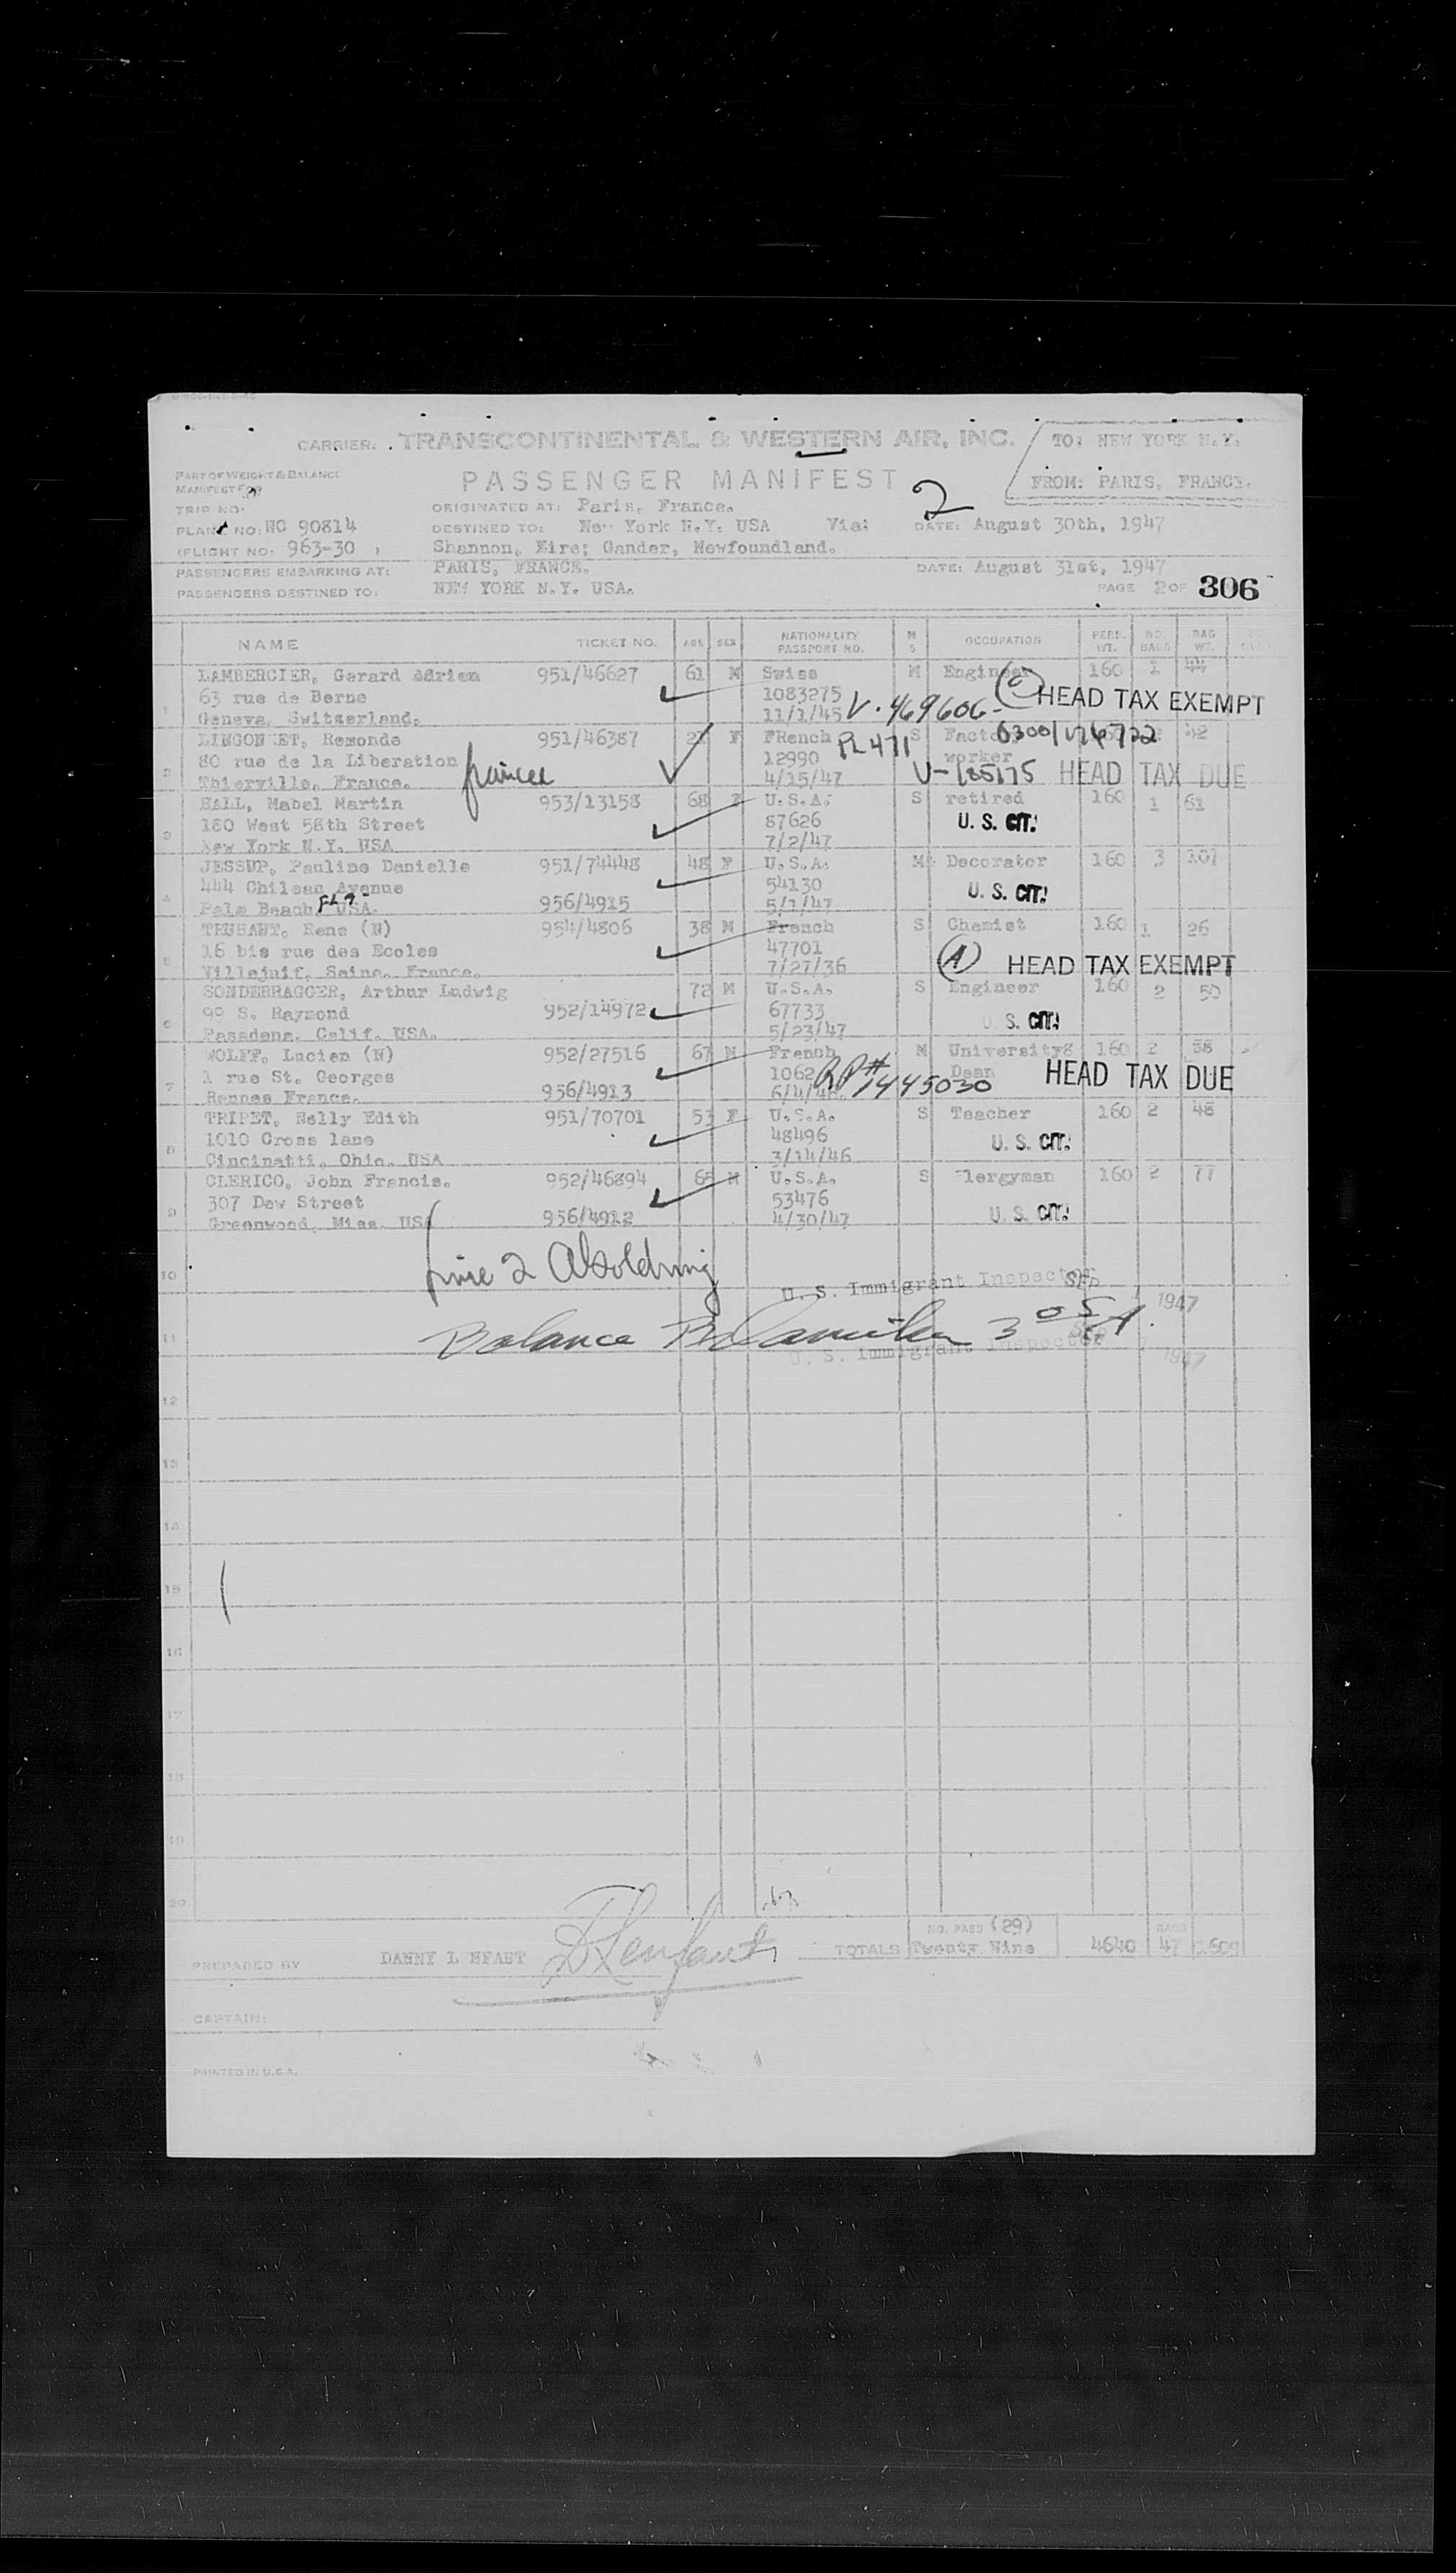 CARRIER: TRANSCONTINENTAL & WESTERN AIR, INC. TO: NEW YORK N.Y.
PART OF WEIGHT & BALANCE
MANIFEST FOR
PASSENGER MANIFEST
2
FROM: PARIS, FRANCE.
TRIP NO.
ORIGINATED AT: Paris, France.
PLANE NO: NC 90814 DESTINED TO: New York N.Y. USA Via: DATE: August 30th, 1947
(FLIGHT NO: 963-30 ) Shannon, Eire; Gander, Newfoundland.
PASSENGERS EMBARKING AT: PARIS, FRANCE. DATE: August 31st, 1947
PASSENGERS DESTINED TO: NEW YORK N.Y. USA. PAGE 2 OF 306
NAME TICKET NO. AGE SEX NATIONALITY PASSPORT NO. M S OCCUPATION PERS. WT. NO. BAGS BAG WT.
LAMBERCIER, Gerard 951/46627 61 M Swiss M Engineer 160 1 44
63 rue de Berne 1083275 V-469606- HEAD TAX EXEMPT
1 Geneva, Switzerland. 11/1/45
951/46387 F FRench PL 471 S 42
80 rue de la Liberation 12990 worker
2 Thierville, France. 4/15/47 HEAD TAX DUE
HALL, Mabel Martin 953/13158 68 F U.S.A. S retired 160 1 61
180 West 58th Street 87626 U. S. CIT.
3 New York N.Y. USA 7/2/47
JESSUP, Pauline Danielle 951/74448 48 F U.S.A. M Decorator 160 3 107
444 Chilean Avenue 54130 U. S. CIT.
4 Palm Beach, FLA. USA. 956/4915 5/1/47
TRUHAUT, Rene (N) 954/4806 38 M French S Chemist 160 1 26
16 bis rue des Ecoles 47701
5 Villejuif, Seine, France. 7/27/36 (A) HEAD TAX EXEMPT
SONDERRAGGER, Arthur Ludwig 72 M U.S.A. S Engineer 160 2 50
99 S. Raymond 952/14972 67733 U. S. CIT.
6 Pasadena, Calif. USA. 5/23/47
WOLFF, Lucien (N) 952/27516 67 M French M University 160 2 38
1 rue St. Georges 1062 RP# 1445030 Dean HEAD TAX DUE
7 Rennes France. 956/4913
TRIPET, Nelly Edith 951/70701 53 F U.S.A. S Teacher 160 2 48
1010 Cross lane 48496 U. S. CIT.
8 Cincinatti, Ohio. USA 3/14/46
CLERICO, John Francis. 952/46894 65 M U.S.A. S Clergyman 160 2 77
307 Dew Street 53476
9 Greenwood, Miss. USA 956/4912 4/30/47 U. S. CIT.
line 2
10 U. S. Immigrant Inspector 1947
Balance
11 U. S. Immigrant Inspector 1947
12
13
14
15
16
17
18
19
20
NO. PASS (29) BAGS
PREPARED BY DANNY L TOTALS Twenty Nine 4640 47
CAPTAIN:
PRINTED IN U.S.A.